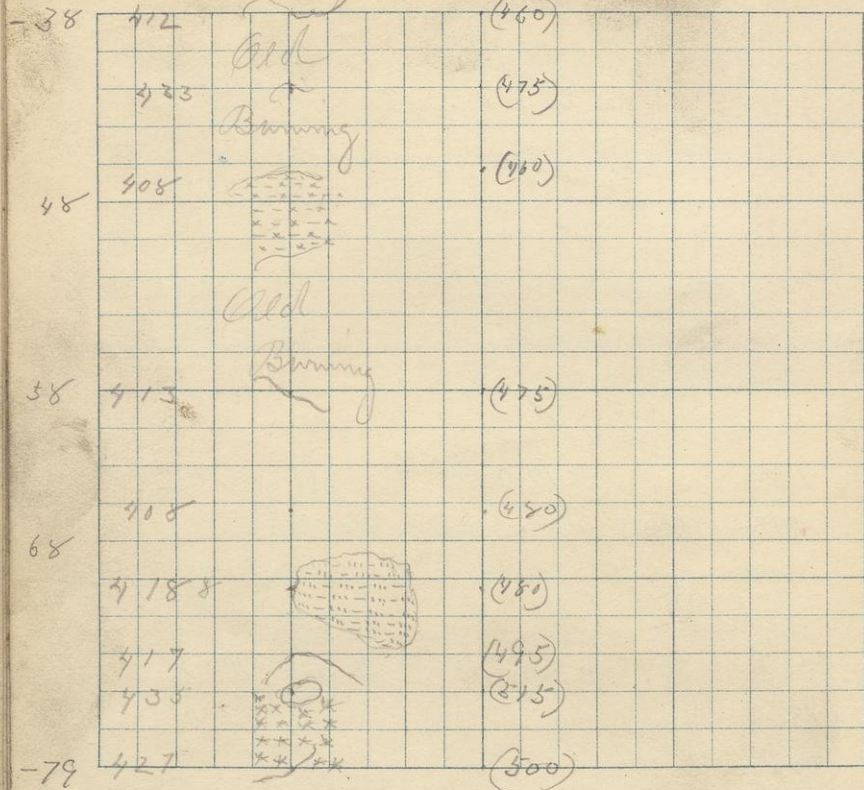 -38 412 (460)
Old
433 (475)
Burning
408 (460)
48
Old
Burning
58 413 (475)
408 (480)
68
418 8 (480)
417 (495)
435 (515)
-79 427 (500)